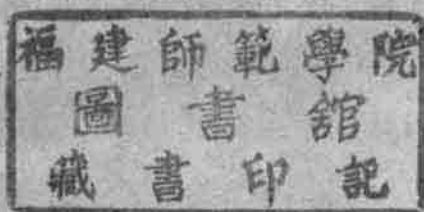 福建師範學院
圖書舘
藏書印記